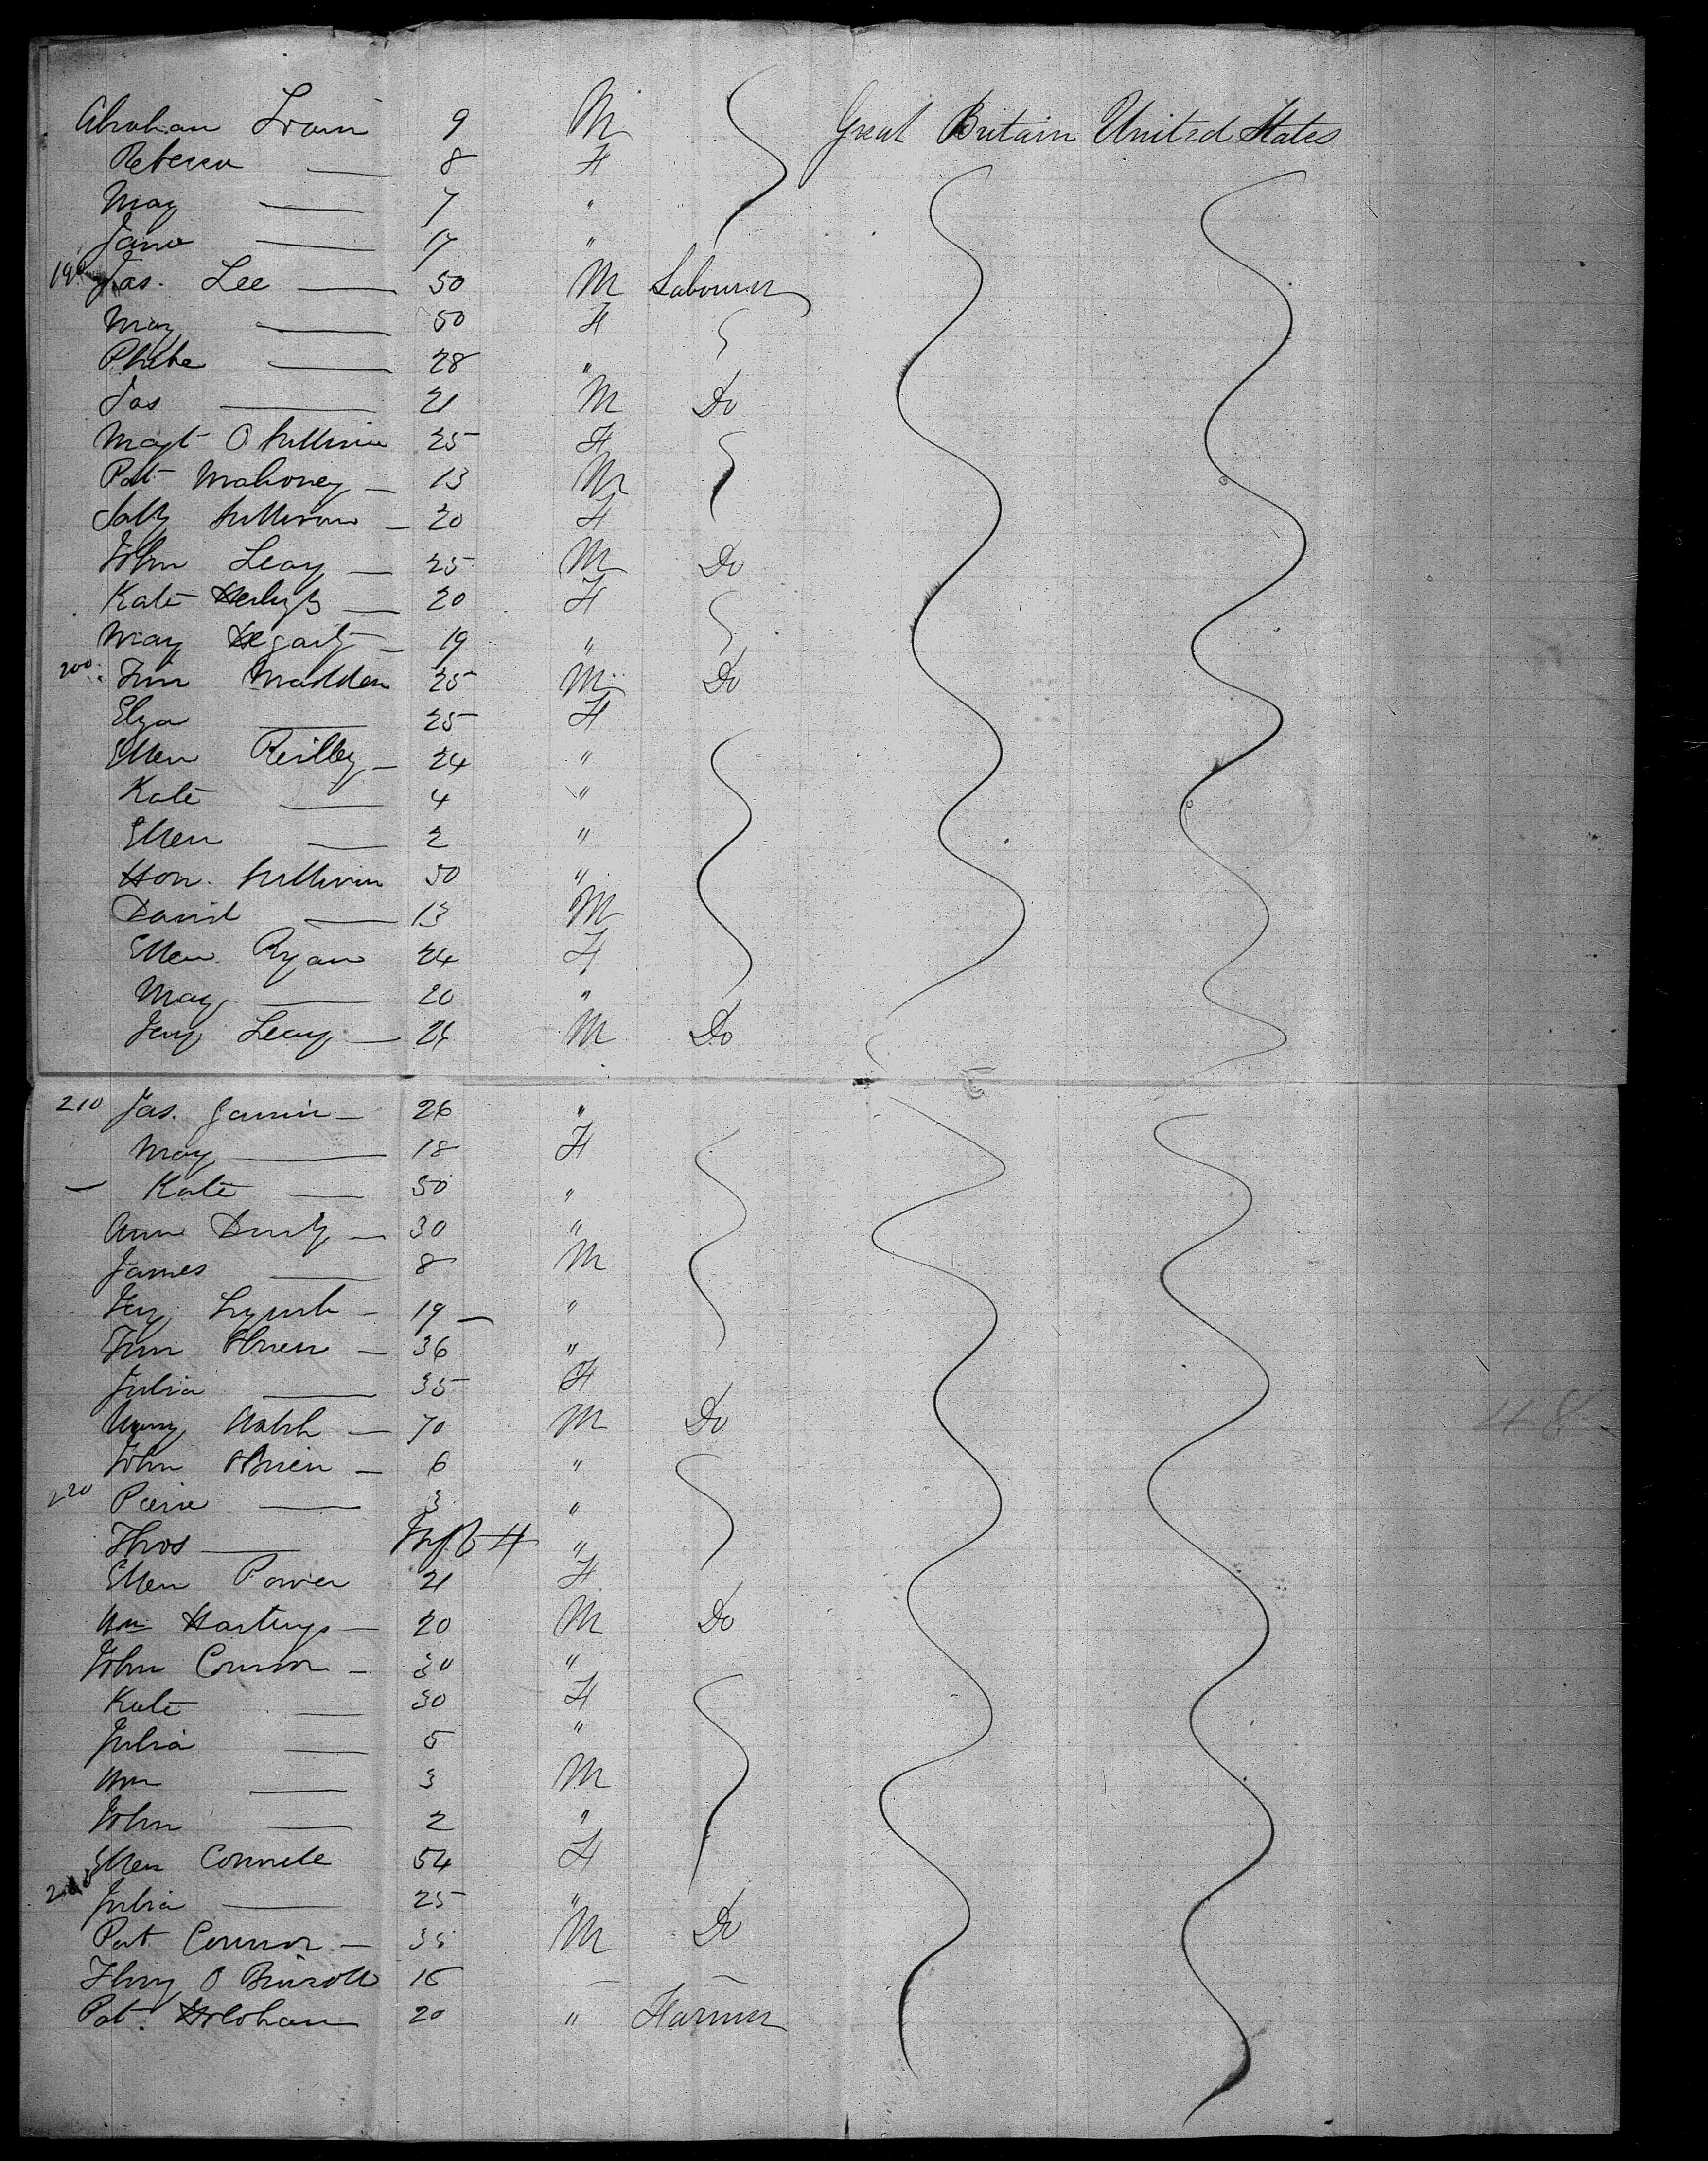 Abraham 9 M Great Britain United States
Rebecca — 8 F
May — 7 "
Jane — 17 "
190 Jas. Lee — 50 M Labourer
May — 50 F
Phebe — 28 "
Jas — 21 M Do
Magt O Sullivan 25 F
Pat Mahoney — 13 M
Sullivan — 20 F
John Leary — 25 M Do
Kate Herlihy — 20 F
May Hegarty — 19 "
200 Tim Madden 25 M Do
Eliza — 25 F
Ellen Reilley — 24 "
Kate — 4 "
Ellen — 2 "
Hon. Sullivan 50 "
David — 13 M
Ellen Ryan 24 F
May — 20 "
Jery Leary — M Do
210 Jas. — 26 "
May — 18 F
— Kate — 50 "
Ann — 30 "
James — 8 M
Jery Lynch — 19 — "
Tim OBrien — 36 "
Julia — 35 F
Walsh — 70 M Do
John OBrien — 6 "
220 — 3 "
Thos — "
Ellen Power 21 F
Wm Hastings — 20 M Do
John Connor — 30 "
Kate — 30 F
Julia — 5 "
Wm — 3 M
John — 2 "
Ellen 54 F
Julia — 25 "
Pat Connor — 35 M Do
16
Pat. Holohan 20 " Farmer
48